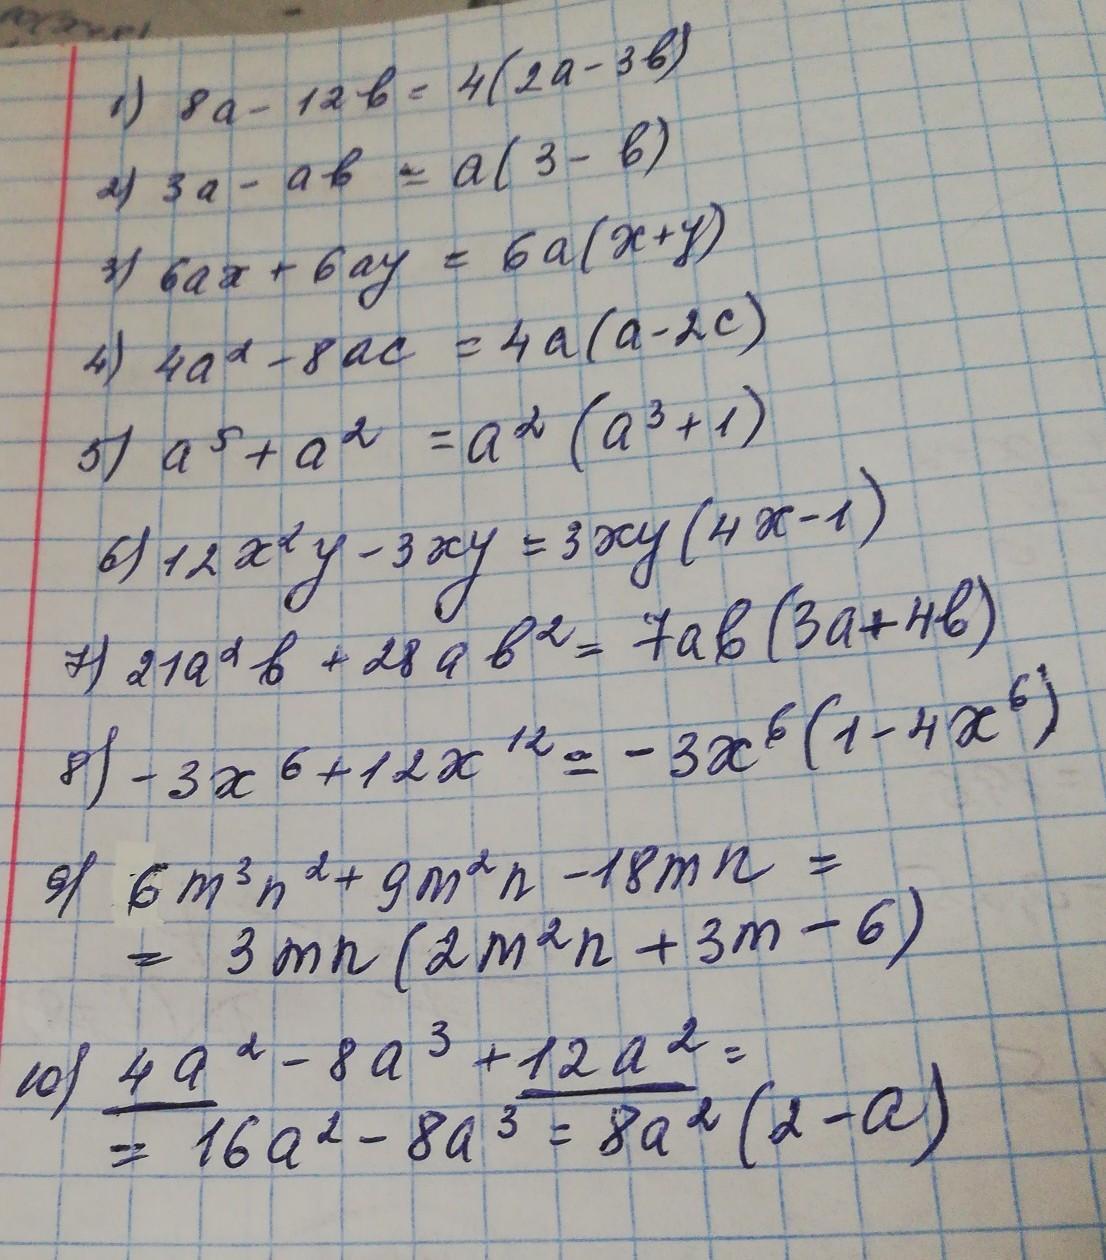 1) 8a - 12b = 4(2a - 3b)
2) 3a - ab = a(3 - b)
3) 6ax + 6ay = 6a(x+y)
4) 4a² - 8ac = 4a(a-2c)
5) a⁵ + a² = a²(a³+1)
6) 12x²y - 3xy = 3xy(4x-1)
7) 21a²b + 28ab² = 7ab(3a+4b)
8) -3x⁶ + 12x¹² = -3x⁶(1-4x⁶)
9) 6m³n² + 9m²n - 18mn =
= 3mn(2m²n + 3m - 6)
10) 4a² - 8a³ + 12a² =
= 16a² - 8a³ = 8a²(2-a)